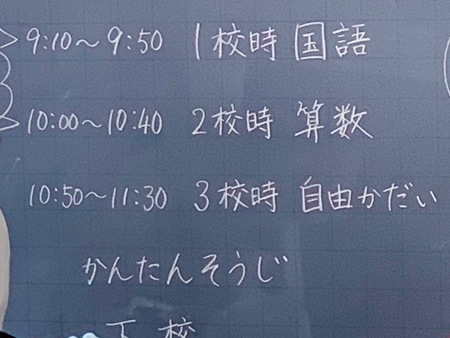 9:10～9:50 1校時 国語
10:00～10:40 2校時 算数
10:50～11:30 3校時 自由かだい
かんたんそうじ
下校